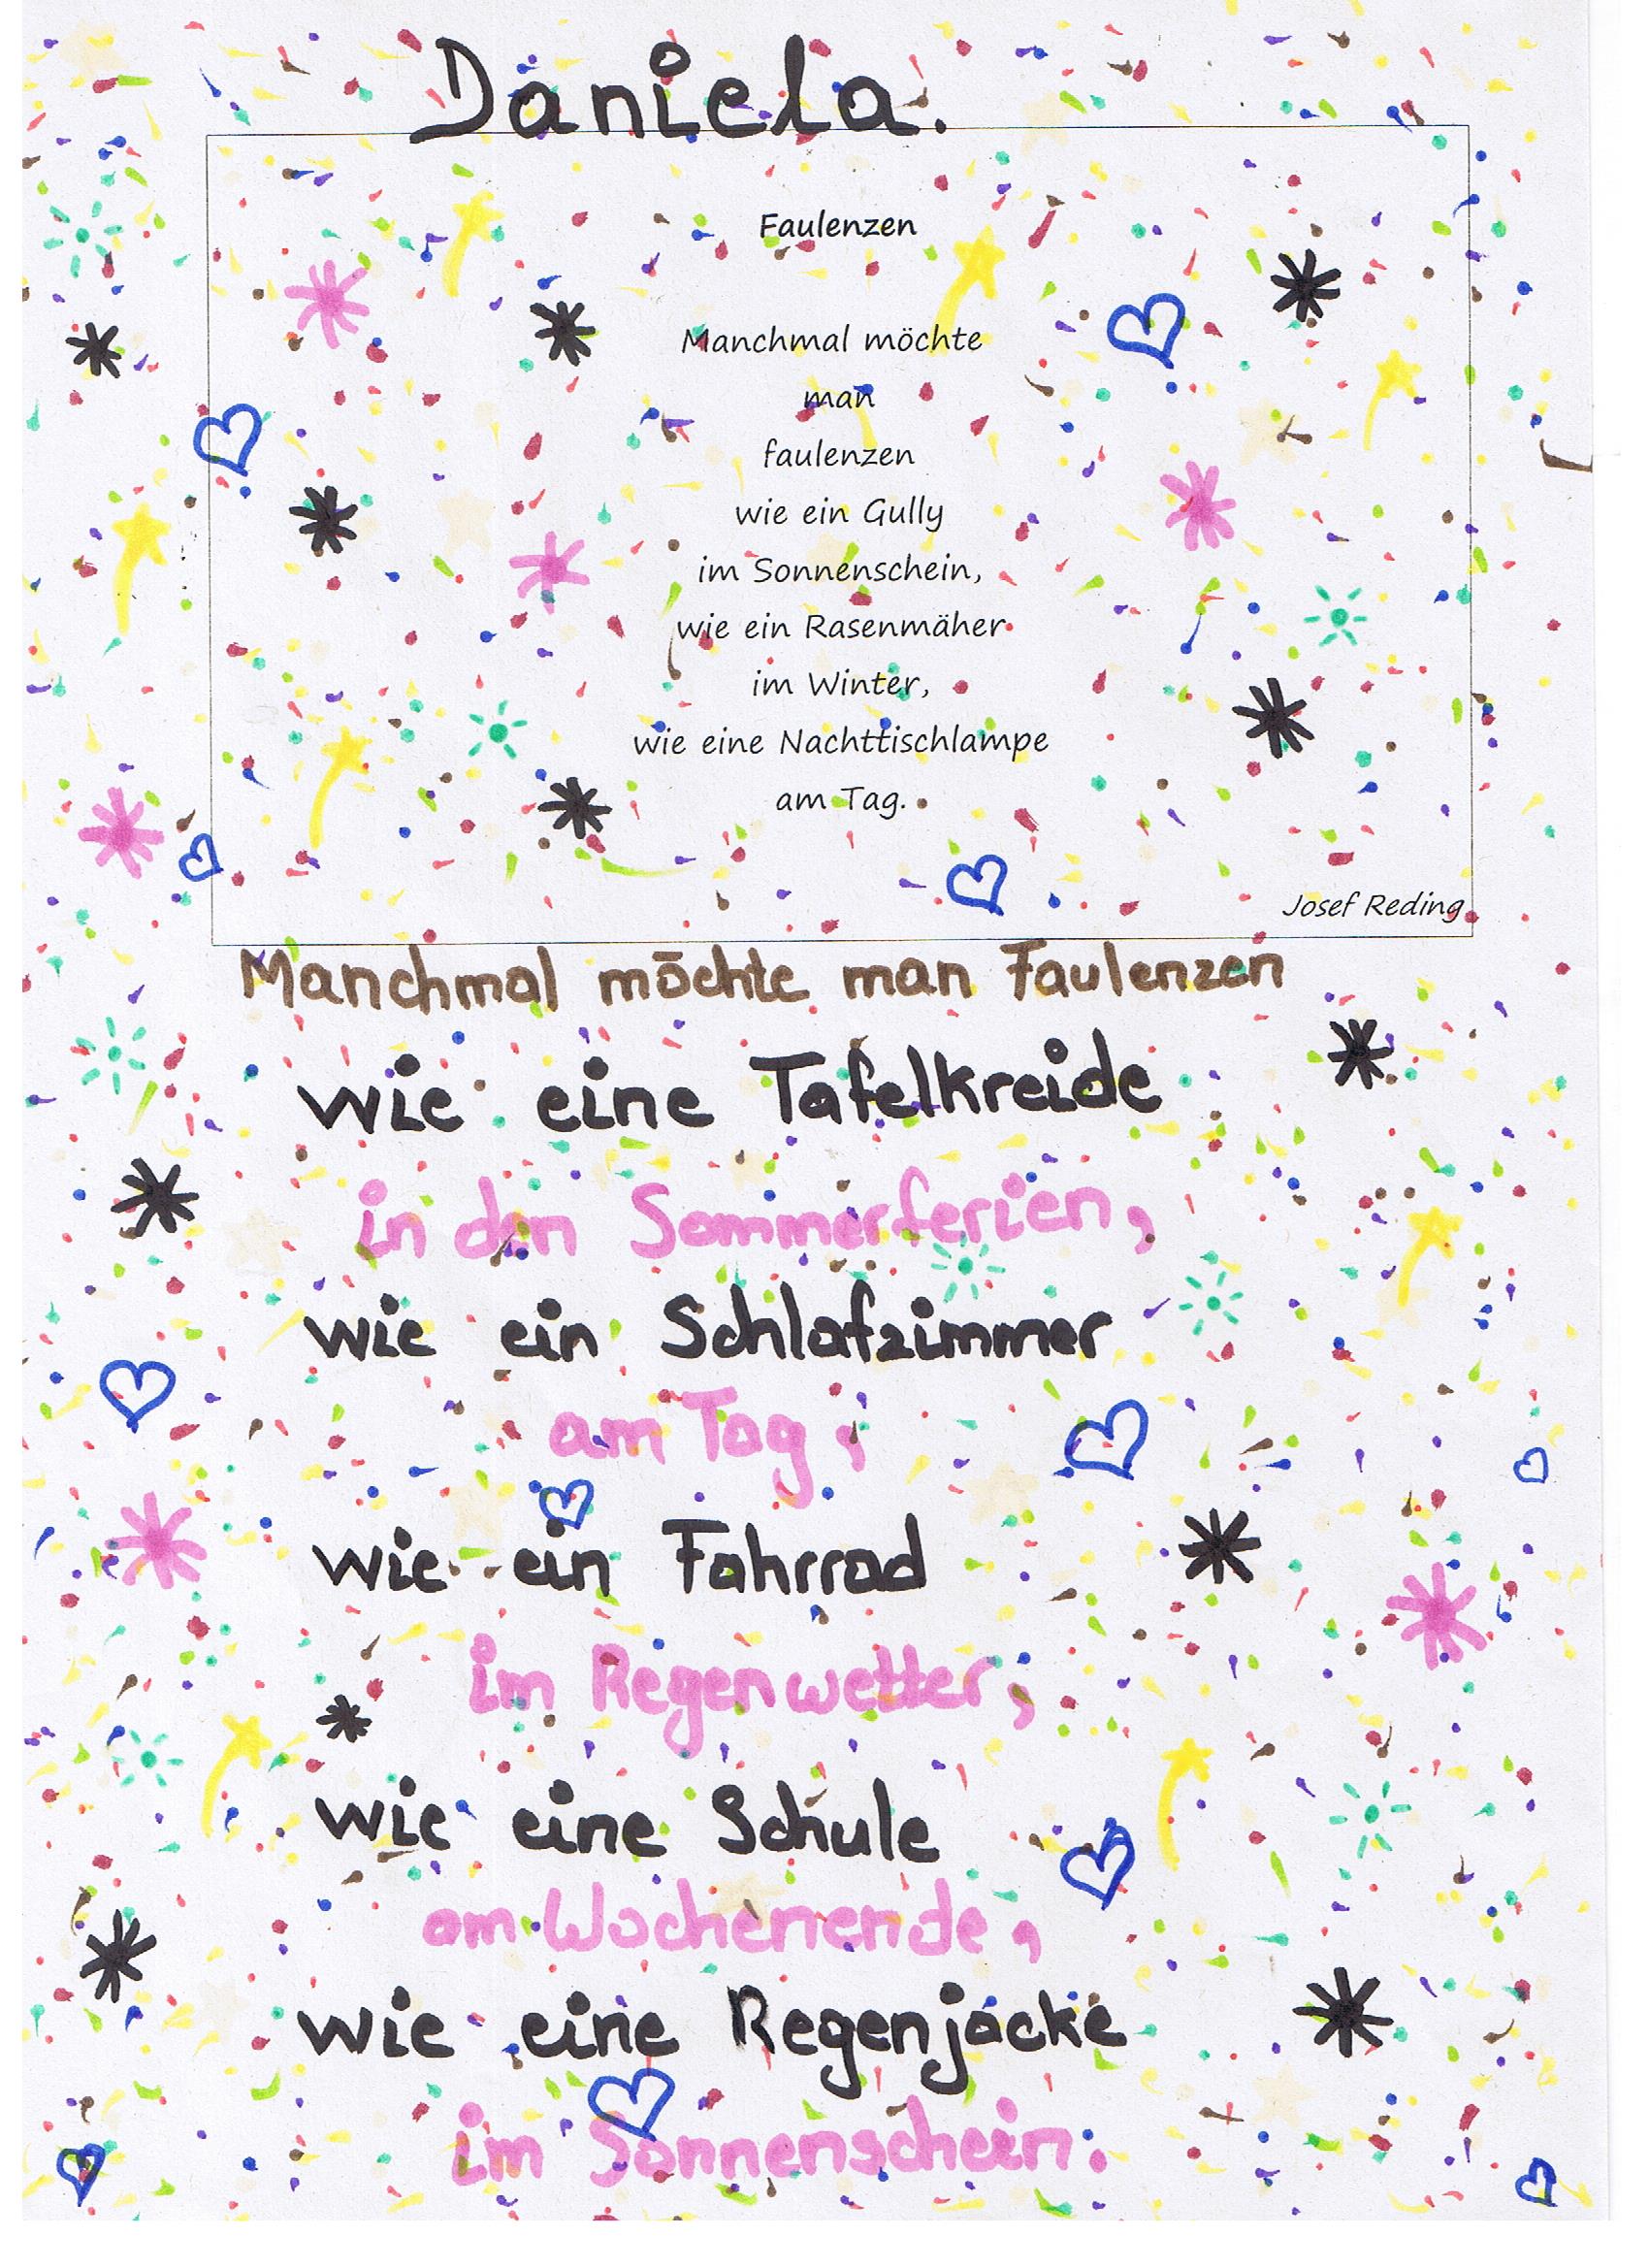 Daniela.
Faulenzen
Manchmal möchte
man
faulenzen
wie ein Gully
im Sonnenschein,
wie ein Rasenmäher
im Winter,
wie eine Nachttischlampe
am Tag.
Josef Reding
Manchmal möchte man Faulenzen
wie eine Tafelkreide
in den Sommerferien,
wie ein Schlafzimmer
am Tag,
wie ein Fahrrad
im Regenwetter,
wie eine Schule
am Wochenende,
wie eine Regenjacke
im Sonnenschein.